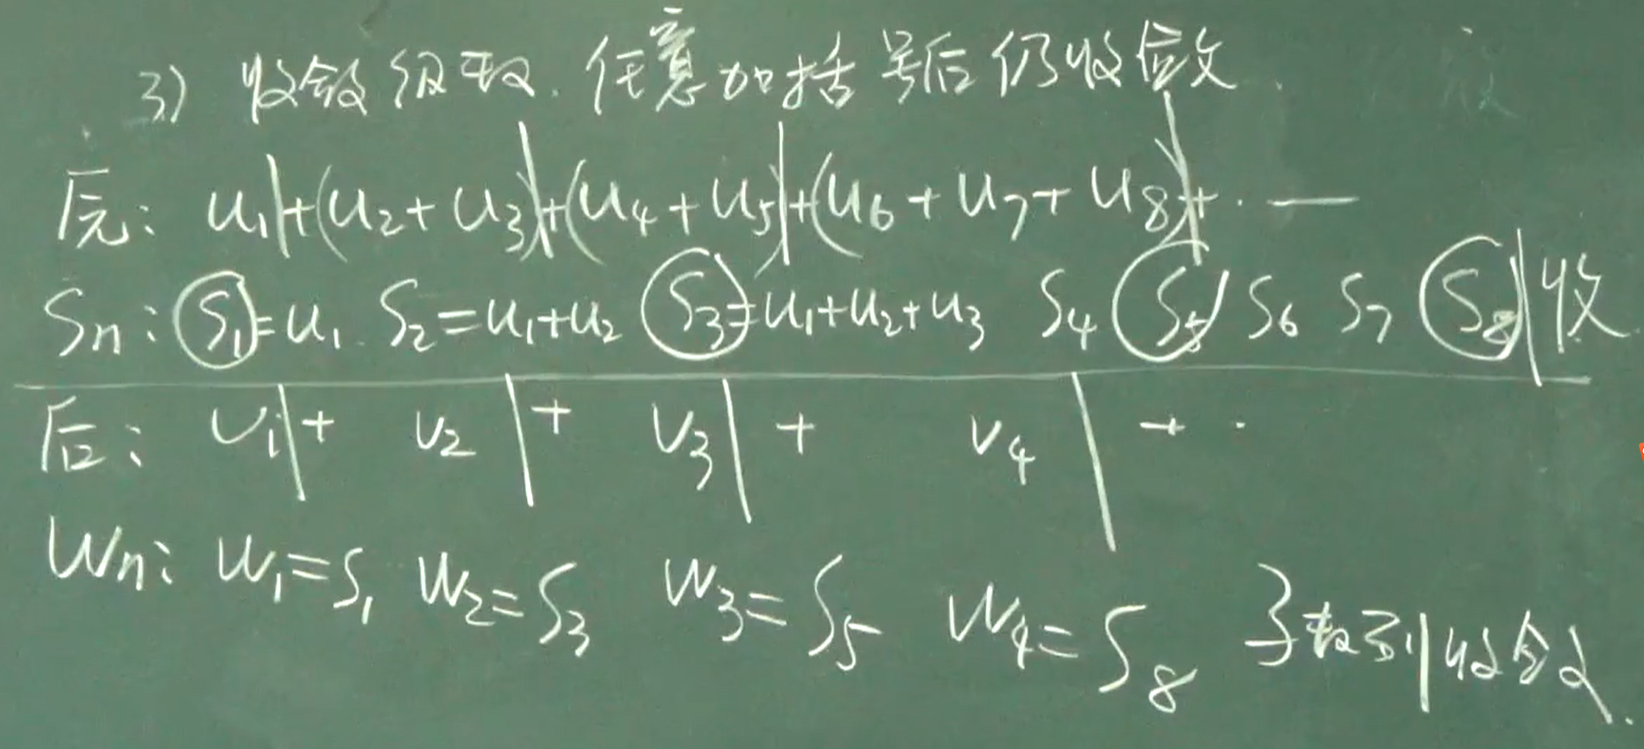 3) 收敛级数. 任意加括号后仍收敛.
原: u₁+(u₂+u₃)+(u₄+u₅)+(u₆+u₇+u₈)+·—
Sn: S₁=u₁. S₂=u₁+u₂ S₃=u₁+u₂+u₃ S₄ S₅ S₆ S₇ S₈ 收
后: v₁+ v₂ + v₃ + v₄ + ·
Wn: W₁=S₁ W₂=S₃ W₃=S₅ W₄=S₈ 子数列收敛.